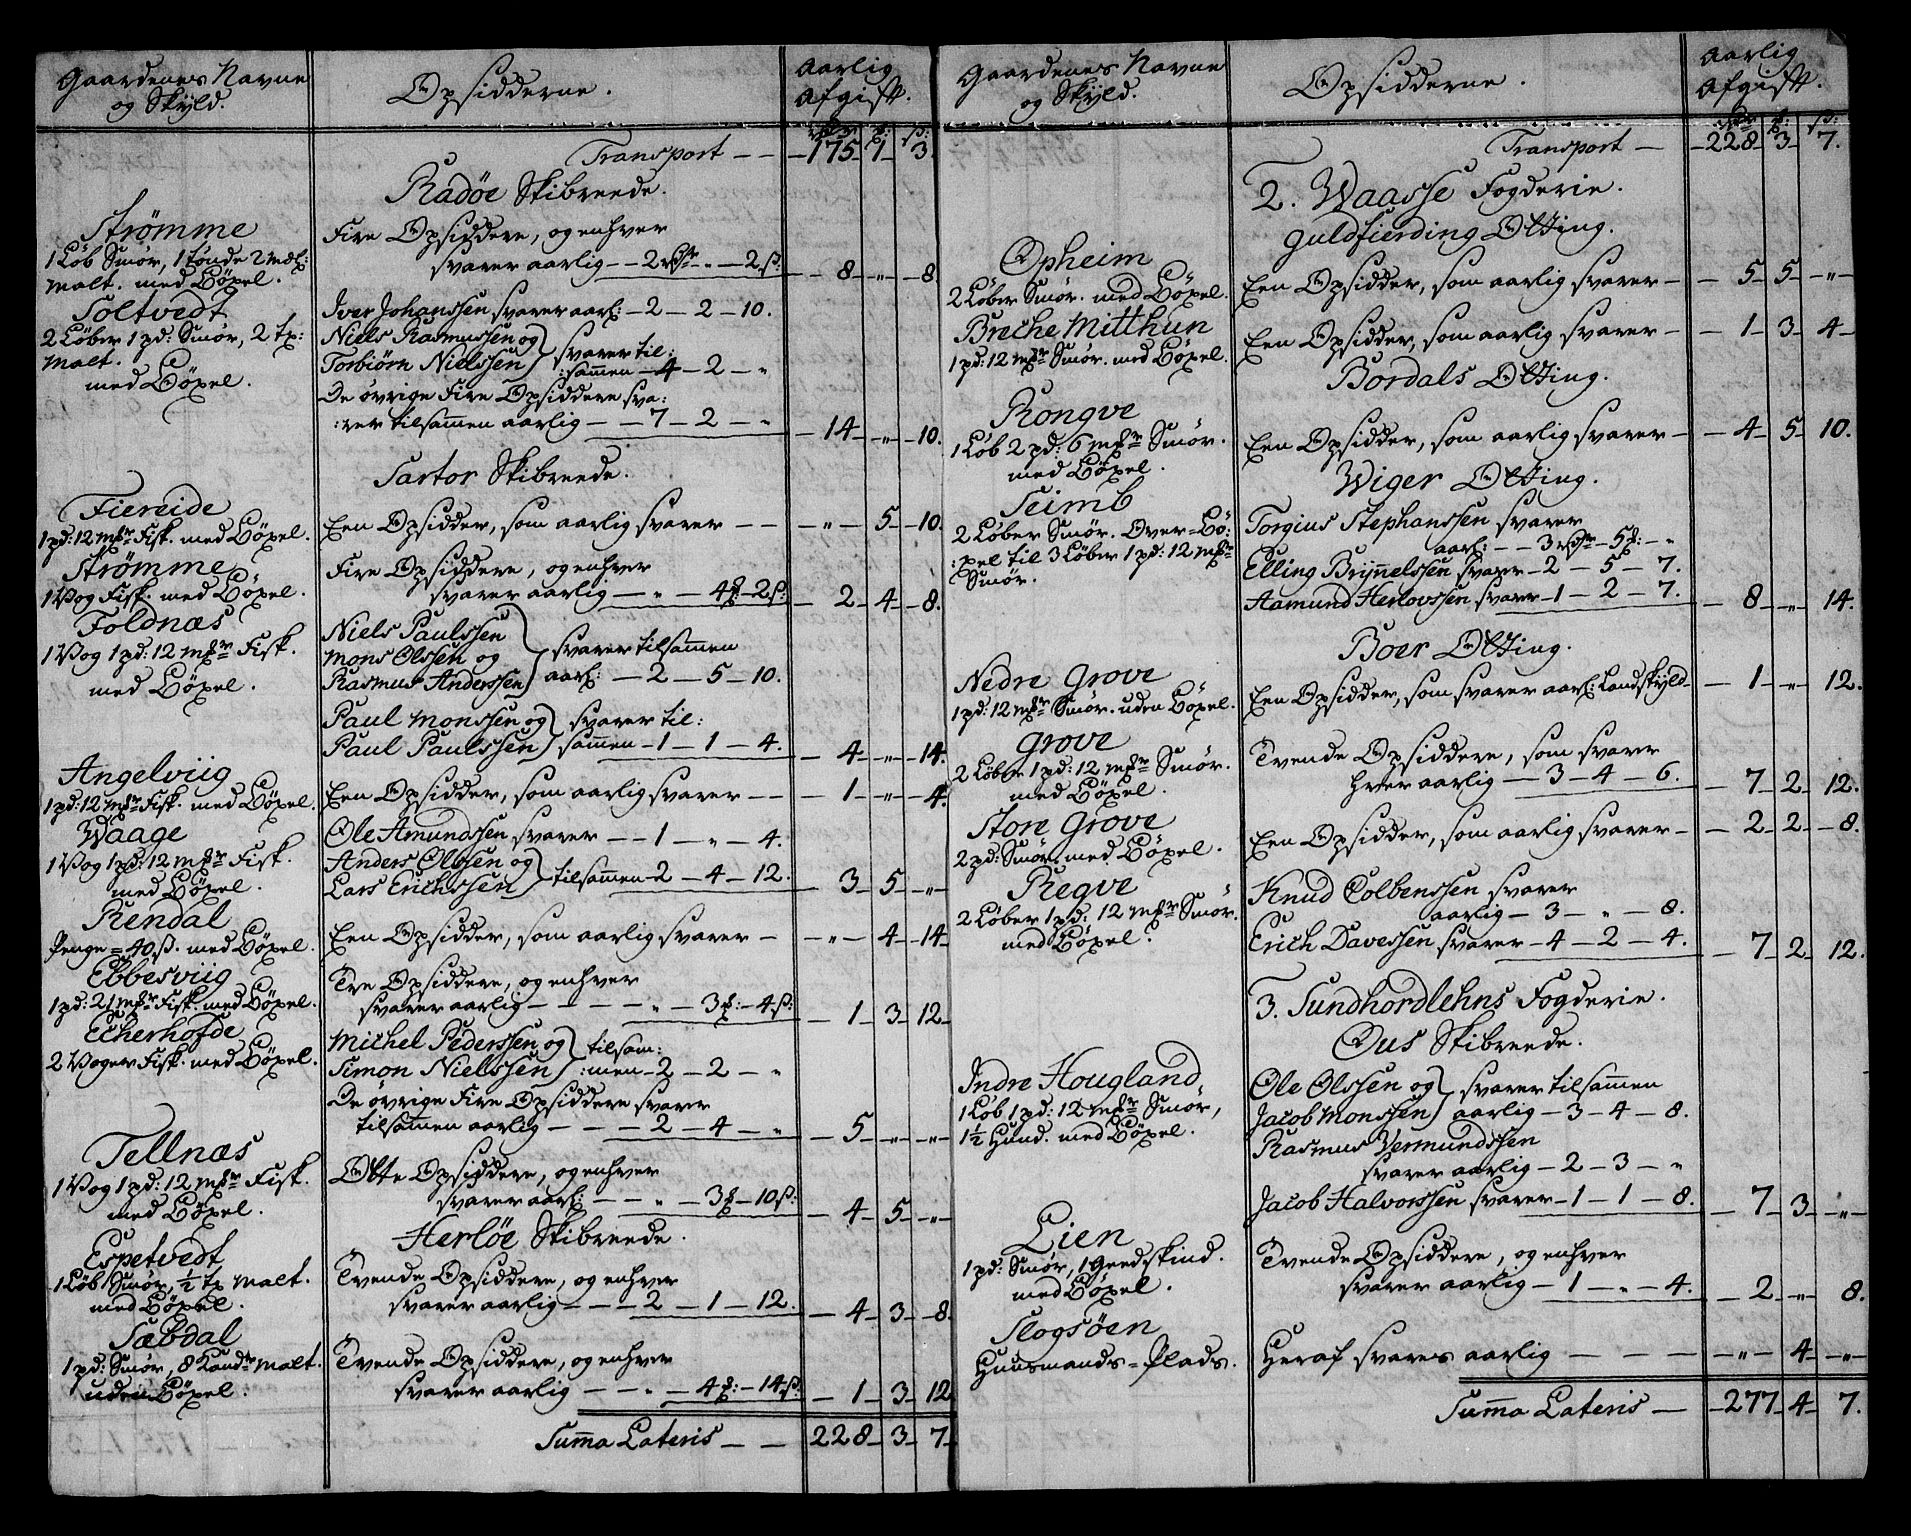 Gaardenes Navne
og Skyld.
Opsidderne.
Aarlig
Afgift.
rdlr ℔: ß:
Transport — — 175 - 1 - 3.
Radøe Skibreede.
Strømme
1 Løb Smør, 1 Tønde 2 Mæl:
Malt. med Bøxel.
Fire Opsiddere, og enhver
svarer aarlig — 2 rdlr " — 2 ß: — 8 - " - 8
Soltvedt
2 Løber 1 pd: Smør, 2 tr:
Malt.
med Bøxel.
Iver Johanssen svarer aarl: — 2 — 2 — 10.
Niels Rasmussen og
Torbiørn Nielssen svarer til:
:sammen — 4 — 2 — "
De øvrige Fire Opsiddere sva:
:rer tilsammen aarlig — — 7 — 2 — " — 14 - " - 10.
Sartor Skibreede.
Fiereide
1 pd: 12 mkr Fisk. med Bøxel.
Een Opsidder, som aarlig svarer — — " — 5 — 10.
Strømme
1 Vog Fisk. med Bøxel.
Fire Opsiddere, og enhver
svarer aarlig — " — 4 ℔ — 2 ß: — 2 - 4 - 8.
Foldnæs
1 Vog 1 pd: 12 mkr Fisk.
med Bøxel.
Niels Paulssen
Mons Olssen og
Rasmus Anderssen svarer tilsammen
aarl: — 2 — 5 — 10.
Paul Monssen og
Paul Paulssen svarer til:
sammen — 1 — 1 — 4. — 4 - " - 14.
Angelviig
1 pd: 12 mkr Fisk. med Bøxel.
Een Opsidder, som aarlig svarer — — 1 — " — 4.
Waage
1 Vog 1 pd: 12 mkr Fisk.
med Bøxel.
Ole Amundssen svarer — — 1 — " — 4.
Anders Olssen og
Lars Erichssen tilsammen — 2 — 4 — 12. — 3 - 5 - "
Rendal
Penge = 40 ß. med Bøxel.
Een Opsidder, som aarlig svarer — " — 4 — 14.
Ebbesviig
1 pd: 21 mkr Fisk. med Bøxel.
Tre Opsiddere, og enhver
svarer aarlig — — — " — 3 ℔ — 4 ß: — 1 - 3 - 12
Echerhofde
2 Voger Fisk. med Bøxel.
Michel Pederssen og
Simon Nielssen tilsam:
:men — 2 — 2 — "
De øvrige Fire Opsiddere svarer
tilsammen aarlig — — — 2 — 4 — " — 5 - " - "
Tellnæs
1 Vog 1 pd: 12 mkr Fisk.
med Bøxel.
Otte Opsiddere, og enhver
svarer aarl: — — " — 3 ℔ — 10 ß: — 4 - 5 - "
Herløe Skibreede.
Espetvedt
1 Løb Smør, ½ tr Malt.
med Bøxel.
Tvende Opsiddere, og enhver
svarer aarlig — — — 2 — 1 — 12. — 4 - 3 - 8
Sæbdal
1 pd: Smør, 8 Kandr Malt.
uden Bøxel.
Tvende Opsiddere, og enhver
svarer aarlig — — " — 4 ℔: — 14 ß: — 1 - 3 - 12
Summa Lateris — — 228 - 3 - 7
Gaardenes Navne
og Skyld.
Opsidderne.
Aarlig
Afgift.
rdlr ℔: ß:
Transport — 228 - 3 - 7.
2. Waasse Fogderie.
Guldfierding Otting.
Opheim
2 Løber Smør. med Bøxel.
Een Opsidder, som aarlig svarer — 5 - 5 - "
Breche Mitthun
1 pd: 12 mkr Smør. med Bøxel.
Een Opsidder, som aarlig svarer — 1 - 3 - 4
Bordals Otting.
Rongve
1 Løb 2 pd: 6 mkr Smør.
med Bøxel.
Een Opsidder, som aarlig svarer — 4 - 5 - 10.
Wiger Otting.
Seimb
2 Løber Smør. Over-Bø:
:xel til 3 Løber 1 pd: 12 mkr
Smør.
Torgius Stephanssen svarer
aarl: — — 3 rdlr — 5 ℔: — "
Elling Brynnelssen svarer — 2 — 5 — 7.
Aamund Herlovssen svarer — 1 — 2 — 7. — 8 - " - 14.
Boer Otting.
Nedre Grove
1 pd: 12 mkr Smør. uden Bøxel.
Een Opsidder, som svarer aarl: Landskyld — 1 - " - 12.
Grove
2 Løber 1 pd: 12 mkr Smør.
med Bøxel.
Tvende Opsiddere, som svarer
hver aarlig — 3 — 4 — 6. — 7 - 2 - 12.
Store Grove
2 pd: Smør. med Bøxel.
Een Opsidder, som aarlig svarer — 2 - 2 - 8.
Reqve
2 Løber 1 pd: 12 mkr Smør.
med Bøxel.
Knud Colbenssen svarer
aarlig — 3 — " — 8.
Erich Davessen svarer — 4 — 2 — 4. — 7 - 2 - 12.
3. Sundhordlehns Fogderie.
Ous Skibreede.
Indre Hougland,
1 Løb 1 pd: 12 mkr Smør,
1½ Hund. med Bøxel.
Ole Olssen og
Jacob Monssen svarer tilsammen
aarlig — 3 — 4 — 8.
Rasmus Vermundssen
svarer aarlig — 2 — 3 — "
Jacob Halvorssen svarer — 1 — 1 — 8. — 7 - 3 - "
Lien
1 pd: Smør, 1 Geedskind.
med Bøxel.
Tvende Opsiddere, og enhver
svarer aarlig — 1 — " — 4. — 2 - " - 8.
Slogsøen
Huusmands-Plads.
Heraf svares aarlig — — — " - 4 - "
Summa Lateris — 277 - 4 - 7.